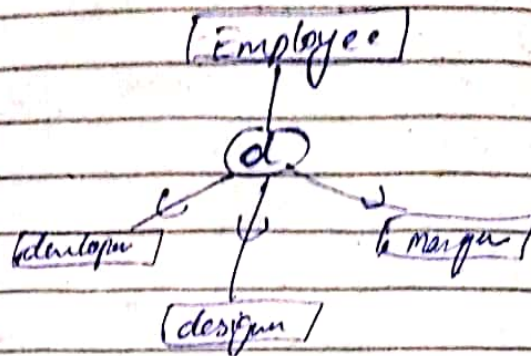 Employee
d
developer
manager
designer